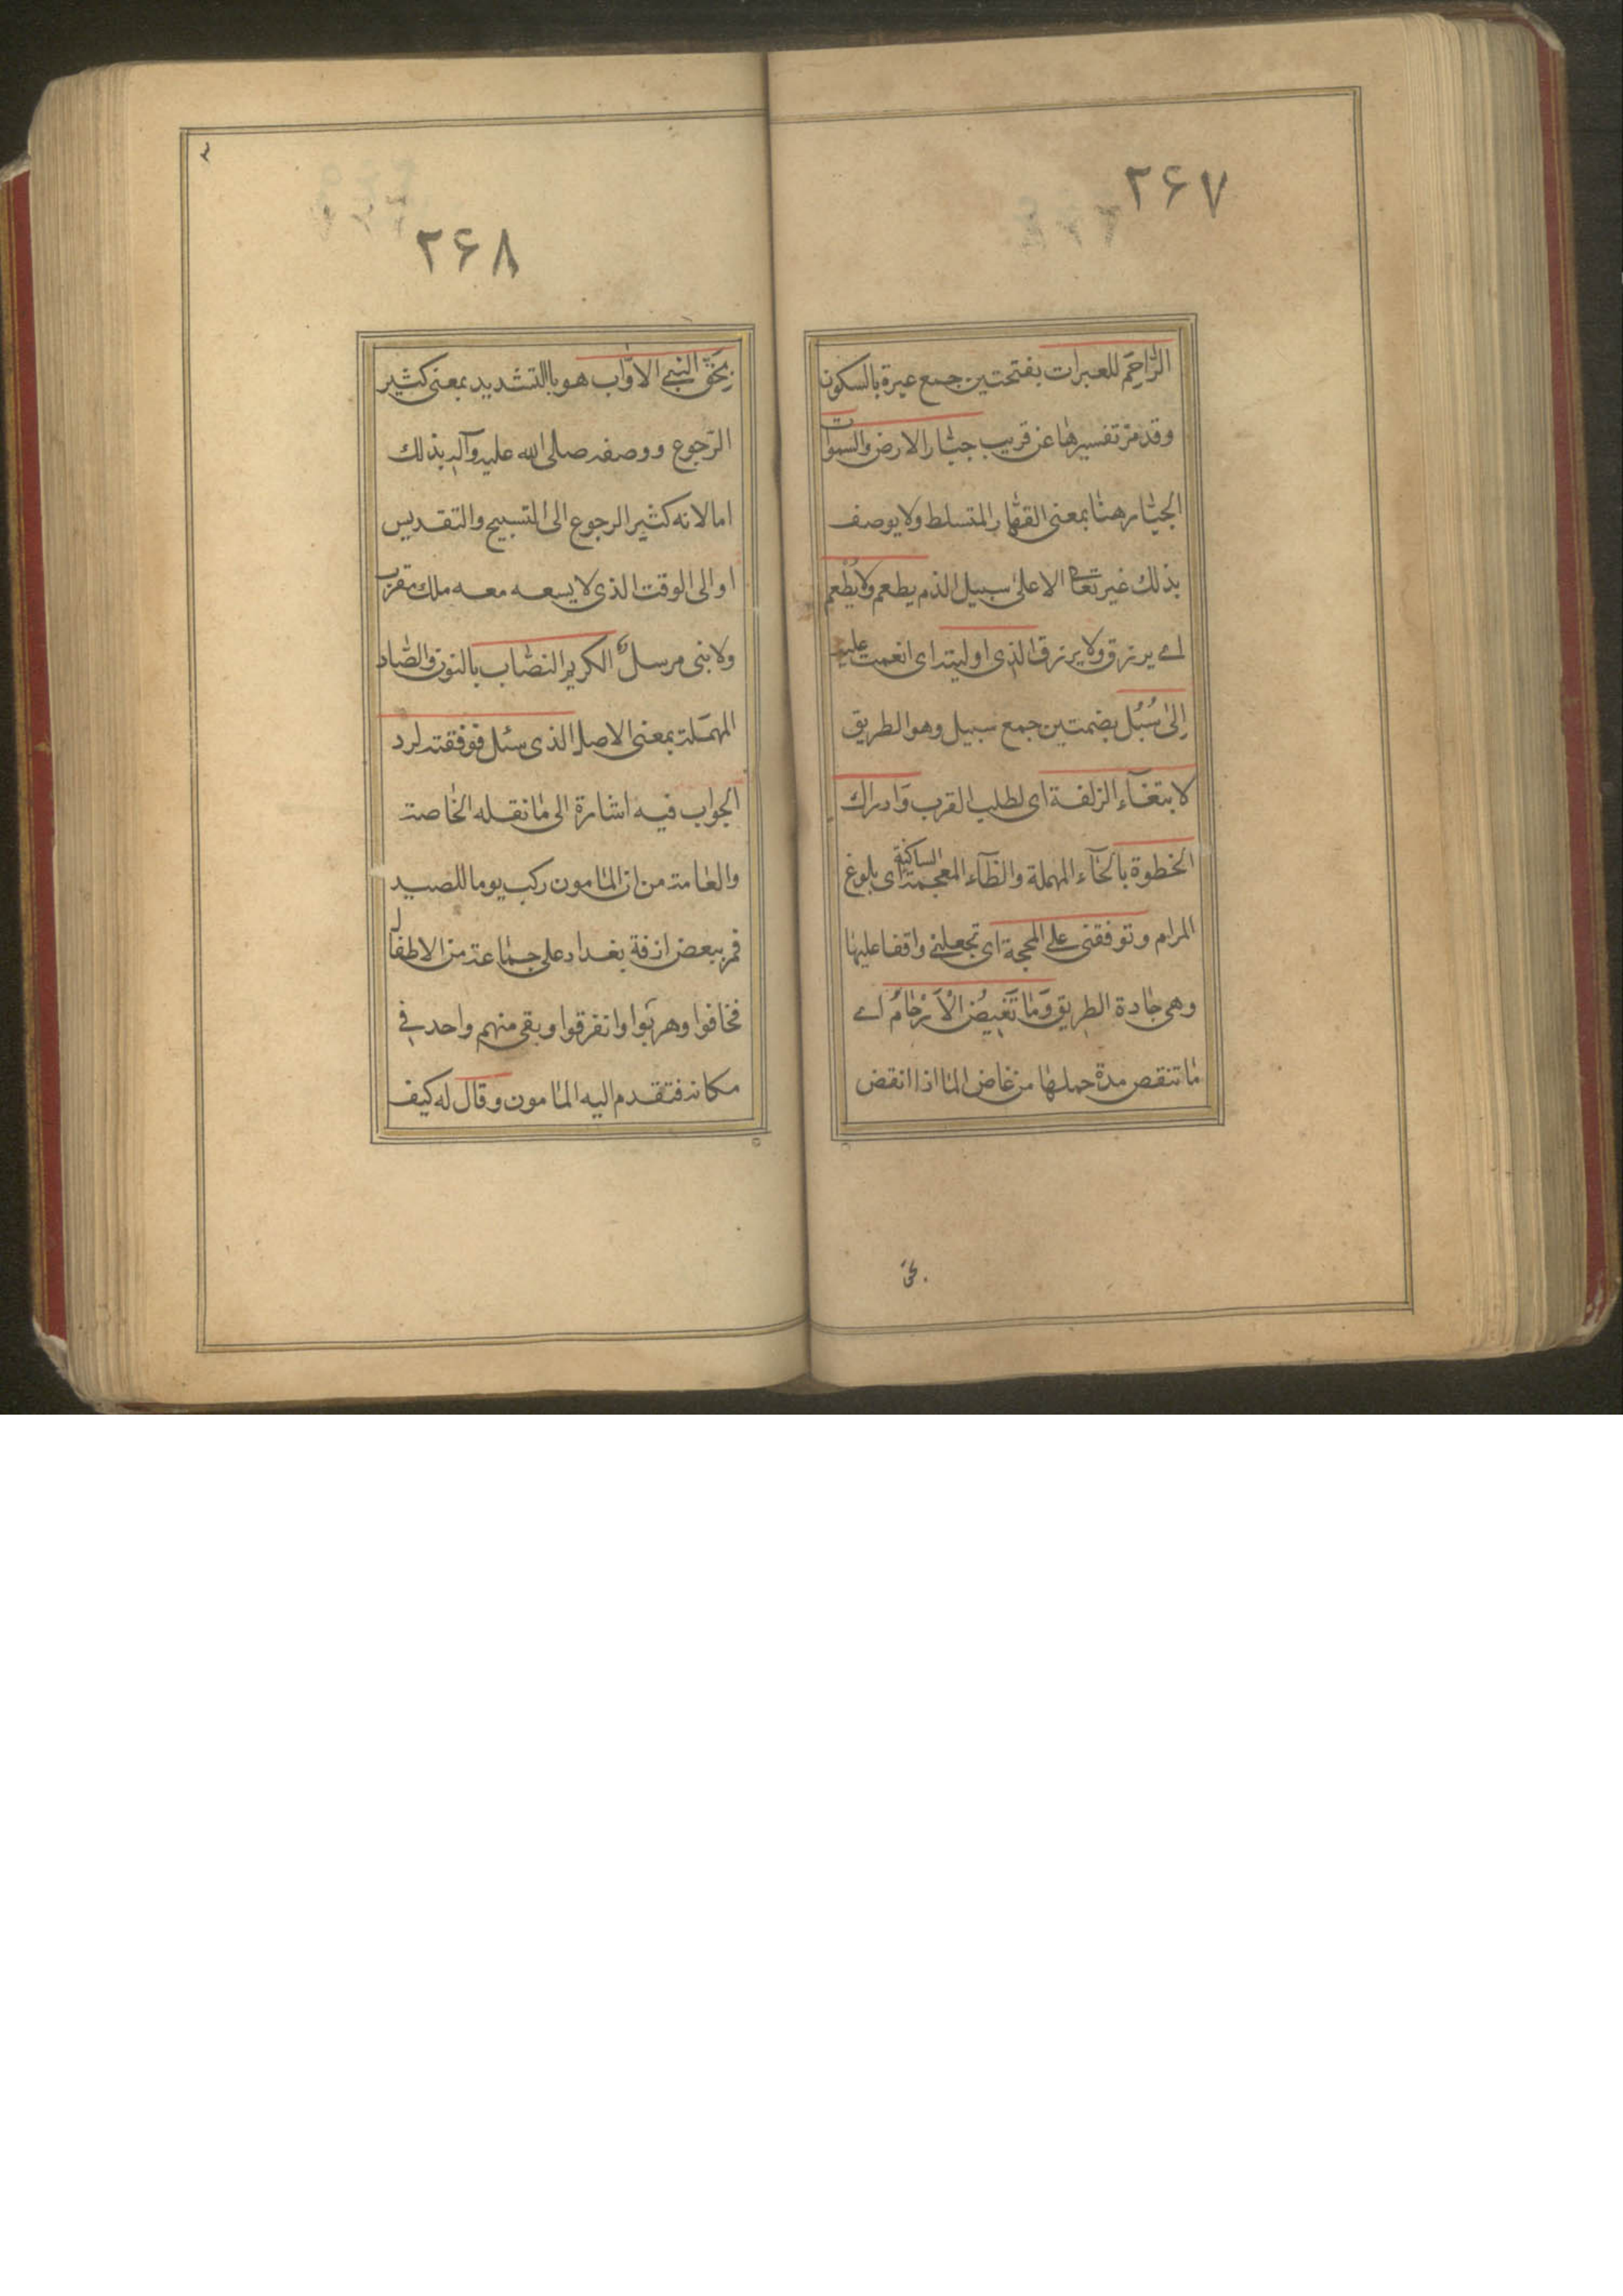 ۲۶۷
الرّاحِمَ للعبرات بفتحتين جمع عبرة بالسكون
وقد مرّ تفسيرها عن قريب جبّار الارض والسموات
الجبّار هنا بمعنى القهّار المتسلط ولا يوصف
بذلك غيره تعالى الا على سبيل الذم يطعم ولا يُطعم
اے يرزق ولا يرزق الذى اوليته اى انعمت عليه
اِلىٰ سُبُل بضمتين جمع سبيل وهو الطريق
لابتغآء الزلفة اى لطلب القرب وَادراك
الخطوة بالخآء المهملة والظآء المعجمة الساكنة اى بلوغ
المرام وتوفقنى على المحجة اى تجعلنے واقفا عليها
وهى جادة الطريق وَمَا تَغيضُ الْاَرْحَامُ اے
ما تنقص مدة حملها من غاض الماا اذا انقض
بحق
۲۶۸
بِحَقّ النبىے الاوّاب هو باالتشديد بمعنى كثير
الرّجوع ووصفه صلى الله عليه وآله بذلك
اما لانه كثير الرجوع الى التسبيح والتقديس
او الى الوقت الذى لا يسعه معه ملك مقرب
ولا نبى مرسل الكريم النصاب بالنون والصّاد
المهملة بمعنى الاصل الذى سئل فوفقته لرد
الجواب فيه اشارة الى ما نقله الخاصة
والعامة من ان المامون ركب يوما للصيد
فمر ببعض ازقة بغداد على جماعة من الاطفال
فخافوا وهربوا وانفرقوا وبقى منهم واحد فے
مكانه فتقدم اليه المامون وقال له كيف